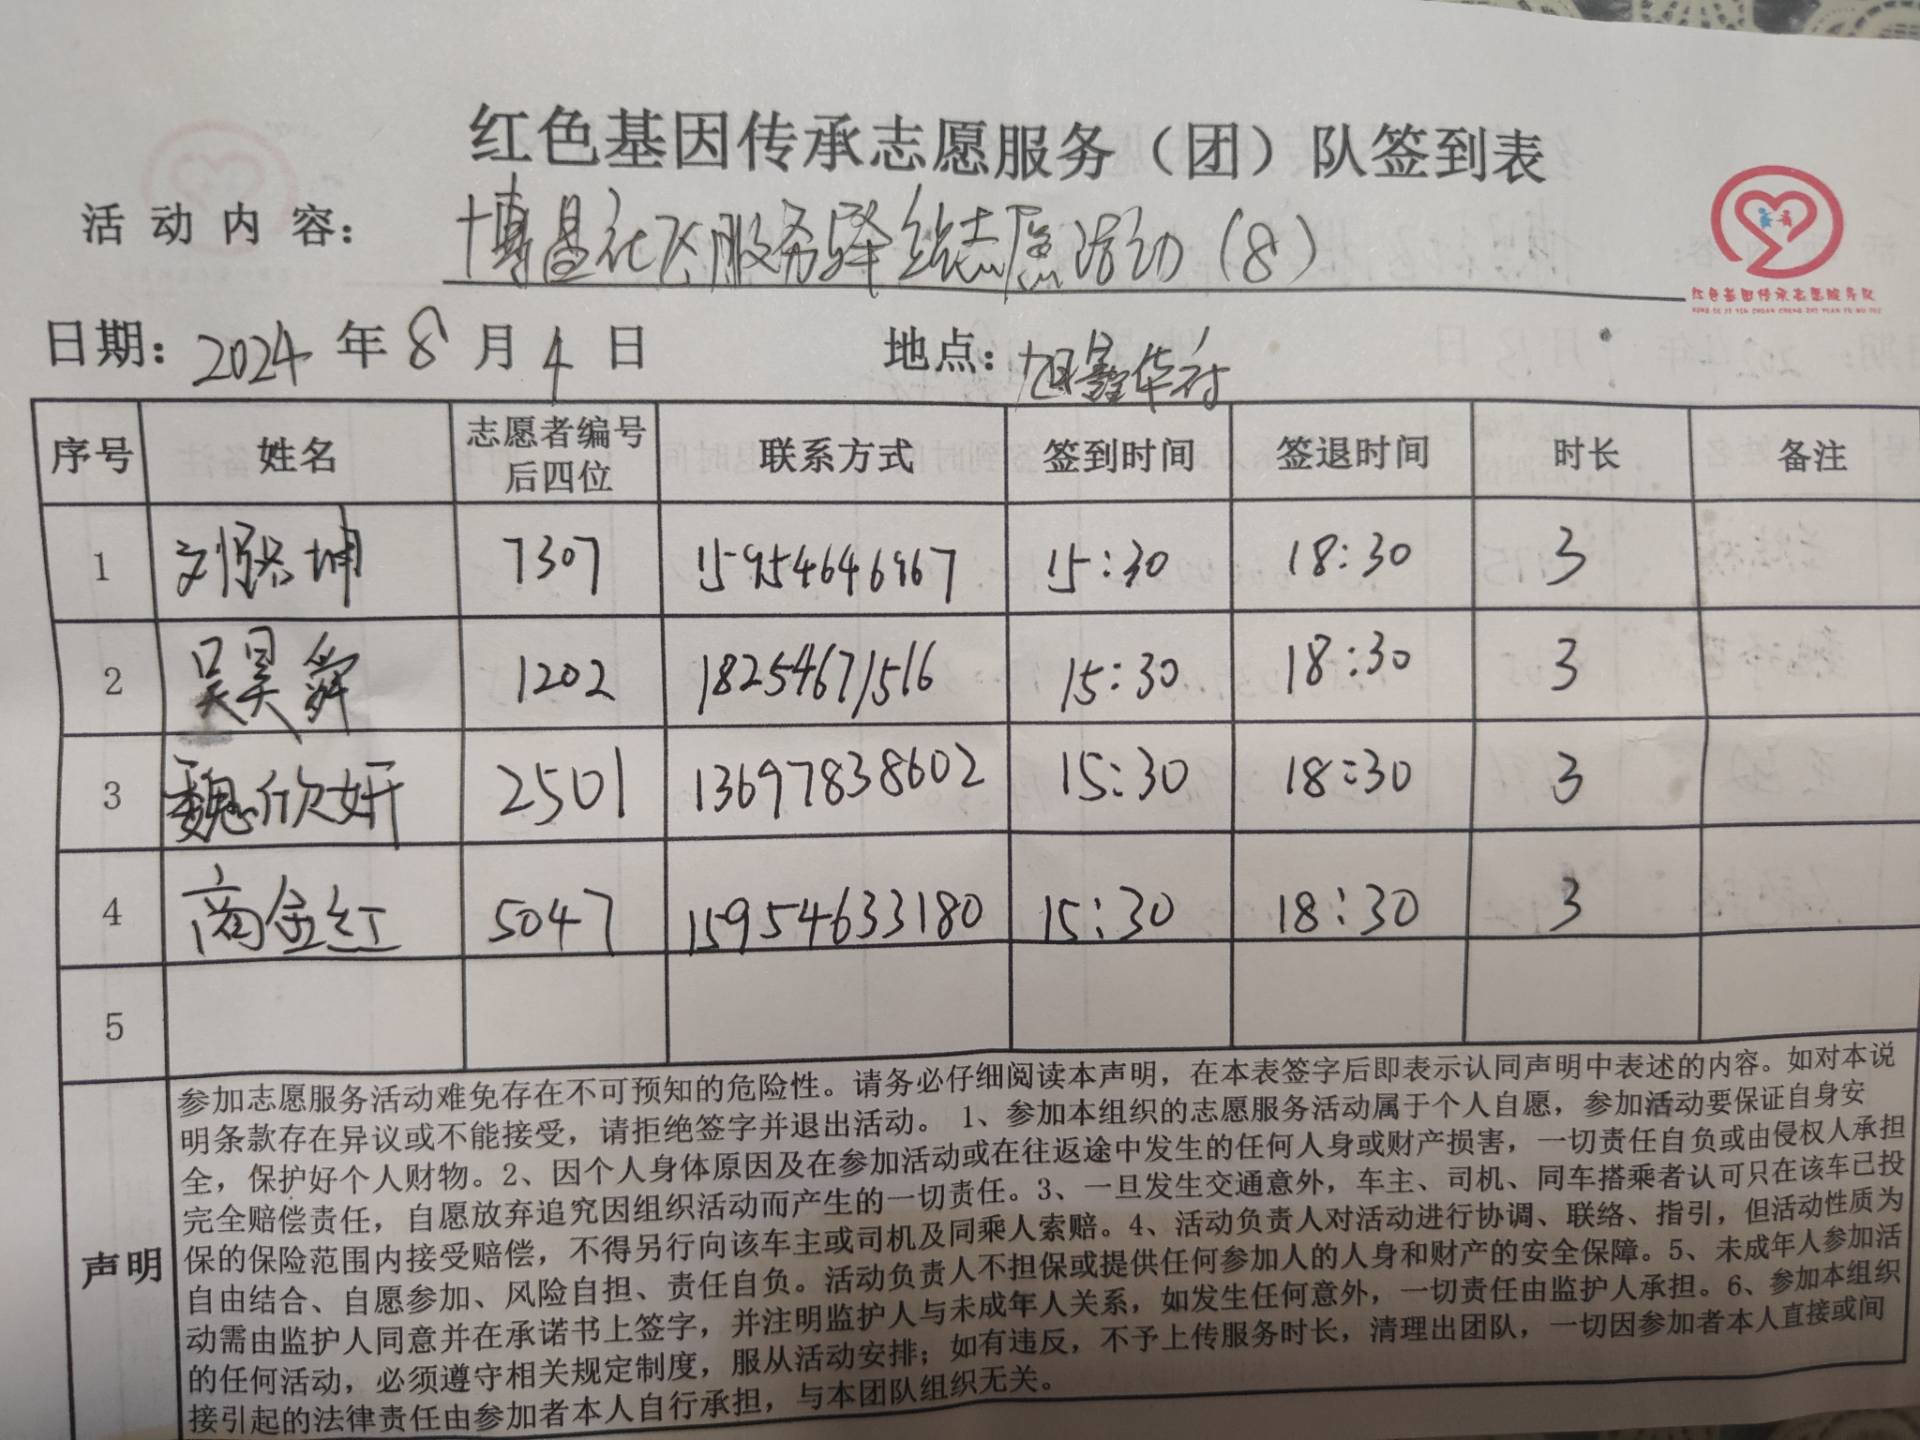 红色基因传承志愿服务（团）队签到表
活动内容： 博昌社区服务驿站志愿活动（8）
红色基因传承志愿服务队
HONG SE JI YIN CHUAN CHENG ZHI YUAN FU WU DUI
日期：2024年8月4日 地点：旭鑫华府
序号 姓名 志愿者编号后四位 联系方式 签到时间 签退时间 时长 备注
1 刘 坤 7307 15954646967 15:30 18:30 3
2 吴昊舜 1202 18254671516 15:30 18:30 3
3 魏欣妍 2501 13697838602 15:30 18:30 3
4 商金红 5047 15954633180 15:30 18:30 3
5
声明
参加志愿服务活动难免存在不可预知的危险性。请务必仔细阅读本声明，在本表签字后即表示认同声明中表述的内容。如对本说
明条款存在异议或不能接受，请拒绝签字并退出活动。 1、参加本组织的志愿服务活动属于个人自愿，参加活动要保证自身安
全，保护好个人财物。2、因个人身体原因及在参加活动或在往返途中发生的任何人身或财产损害，一切责任自负或由侵权人承担
完全赔偿责任，自愿放弃追究因组织活动而产生的一切责任。3、一旦发生交通意外，车主、司机、同车搭乘者认可只在该车已投
保的保险范围内接受赔偿，不得另行向该车主或司机及同乘人索赔。4、活动负责人对活动进行协调、联络、指引，但活动性质为
自由结合、自愿参加、风险自担、责任自负。活动负责人不担保或提供任何参加人的人身和财产的安全保障。5、未成年人参加活
动需由监护人同意并在承诺书上签字，并注明监护人与未成年人关系，如发生任何意外，一切责任由监护人承担。6、参加本组织
的任何活动，必须遵守相关规定制度，服从活动安排；如有违反，不予上传服务时长，清理出团队，一切因参加者本人直接或间
接引起的法律责任由参加者本人自行承担，与本团队组织无关。